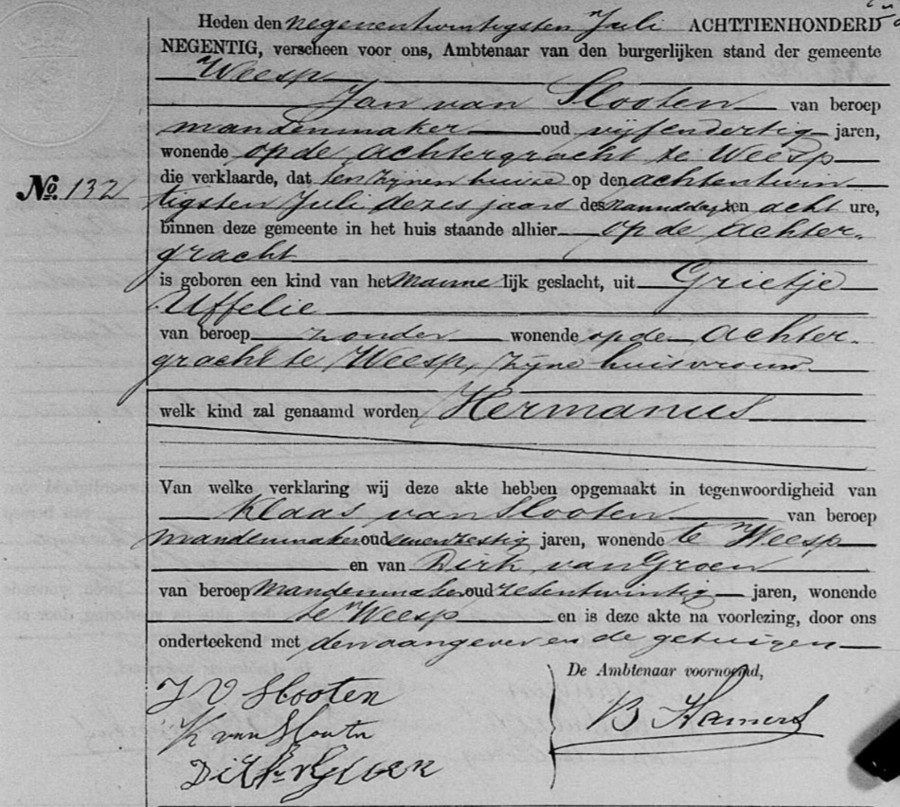 Heden den negenentwintigsten Juli ACHTTIENHONDERD
NEGENTIG, verscheen voor ons, Ambtenaar van den burgerlijken stand der gemeente
Weesp
Jan van Slooten van beroep
mandenmaker oud vijfendertig jaren,
wonende op de Achtergracht te Weesp
No. 132
die verklaarde, dat ten zijnen huize op den achtentwin
tigsten Juli dezes jaars des namiddags ten acht ure,
binnen deze gemeente in het huis staande alhier op de Achter-
gracht
is geboren een kind van het manne lijk geslacht, uit Grietje
Uffelie
van beroep zonder wonende op de Achter-
gracht te Weesp, zijne huisvrouw
welk kind zal genaamd worden Hermanus
Van welke verklaring wij deze akte hebben opgemaakt in tegenwoordigheid van
Klaas van Slooten van beroep
mandenmaker oud jaren, wonende te Weesp
en van Dirk van Groen
van beroep mandenmaker oud zesentwintig jaren, wonende
te Weesp en is deze akte na voorlezing, door ons
onderteekend met den aangever en de getuigen
De Ambtenaar voornoemd,
J V Slooten
K van Slooten
Dirk v Groen
B